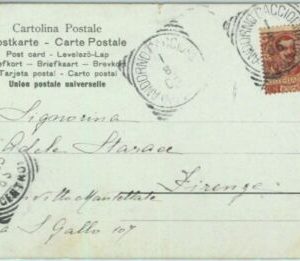 Cartolina Postale
Postkarte - Carte Postale
Post card - Levelező-Lap
Briefkort - Briefkaart - Brevkort
Tarjeta postal - Carto postal
Union postale universelle
ANDORNO CACCIORNO
Signorina
Adele Starace
Firenze
Villa Mantellate
Via S Gallo 107
CENTRO